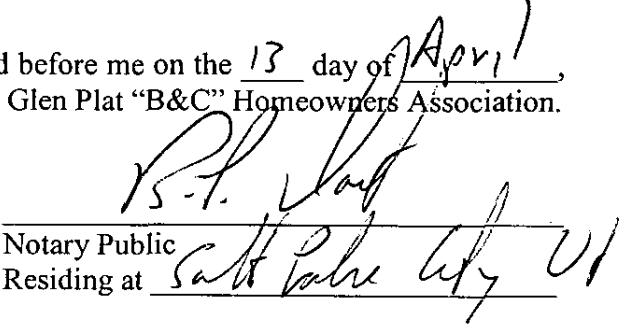 d before me on the 13 day of April,
Glen Plat “B&C” Homeowners Association.
Notary Public
Residing at Salt Lake City Ut